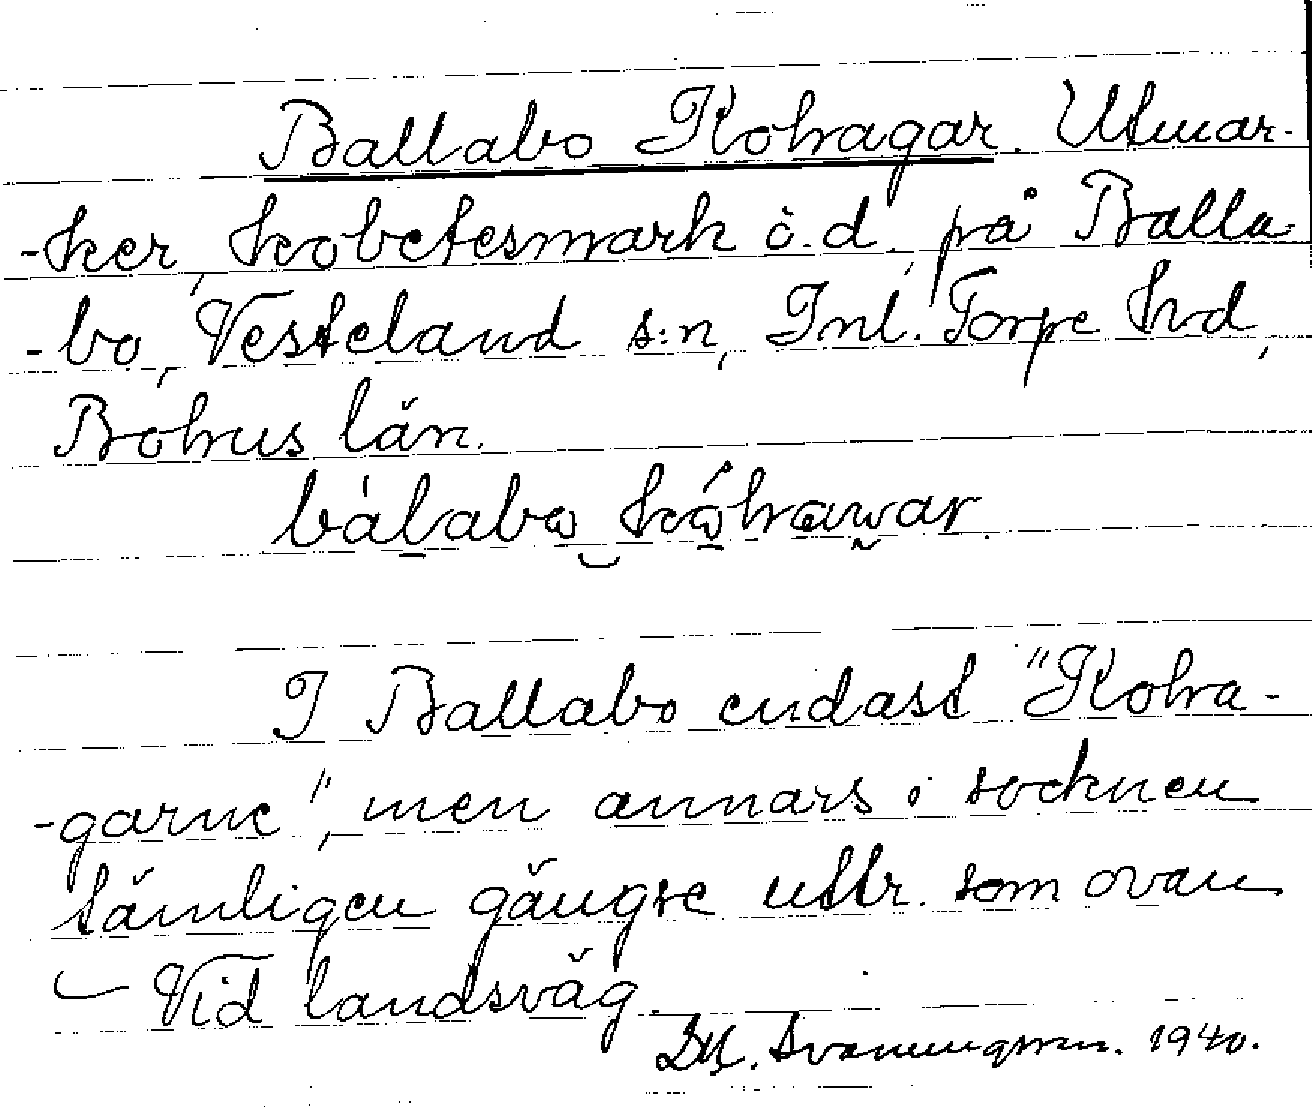 Ballabo Kohagar. Utmar-
-ker, kobetesmark ö.d. på Balla-
-bo, Vesteland s:n, Inl. Torpe hd,
Bohus län.
I Ballabo endast "Koha-
-garne", men annars i socknen
tämligen gängse uttr. som ovan
Vid landsväg.
1940.